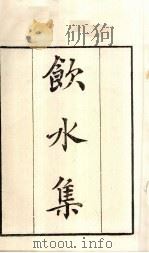 飲水集
mtoou.info